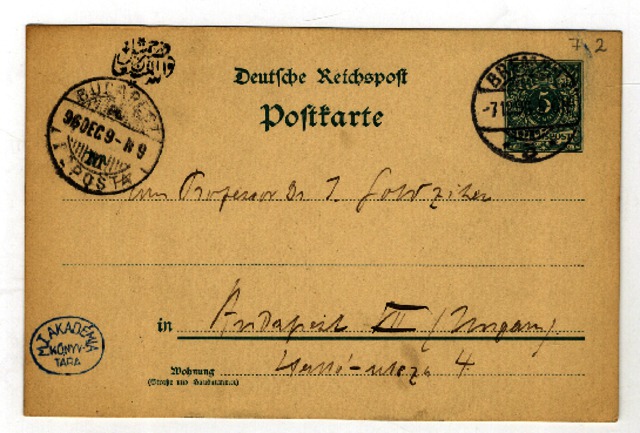 7 2
Deutsche Reichspost
Postkarte
BUDAPEST
96 DEC 9 - N 9
I. POSTA
BREMEN
-7 12
5
Professor Dr I. Goldziher
in Budapest VII (Ungarn)
Wohnung
(Straße und Hausnummer)
4
M.T. AKADÉMIA
KÖNYV-
TÁRA